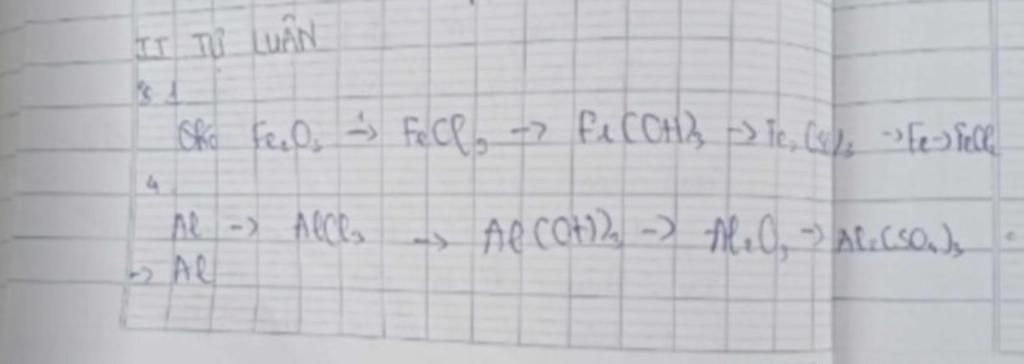 II TỰ LUẬN
1
Fe₂O₃ → FeCl₃ → Fe(OH)₃ → Fe₂(SO₄)₃ → Fe → FeCl₂
4
Al → AlCl₃ → Al(OH)₃ → Al₂O₃ → Al₂(SO₄)₃
→ Al